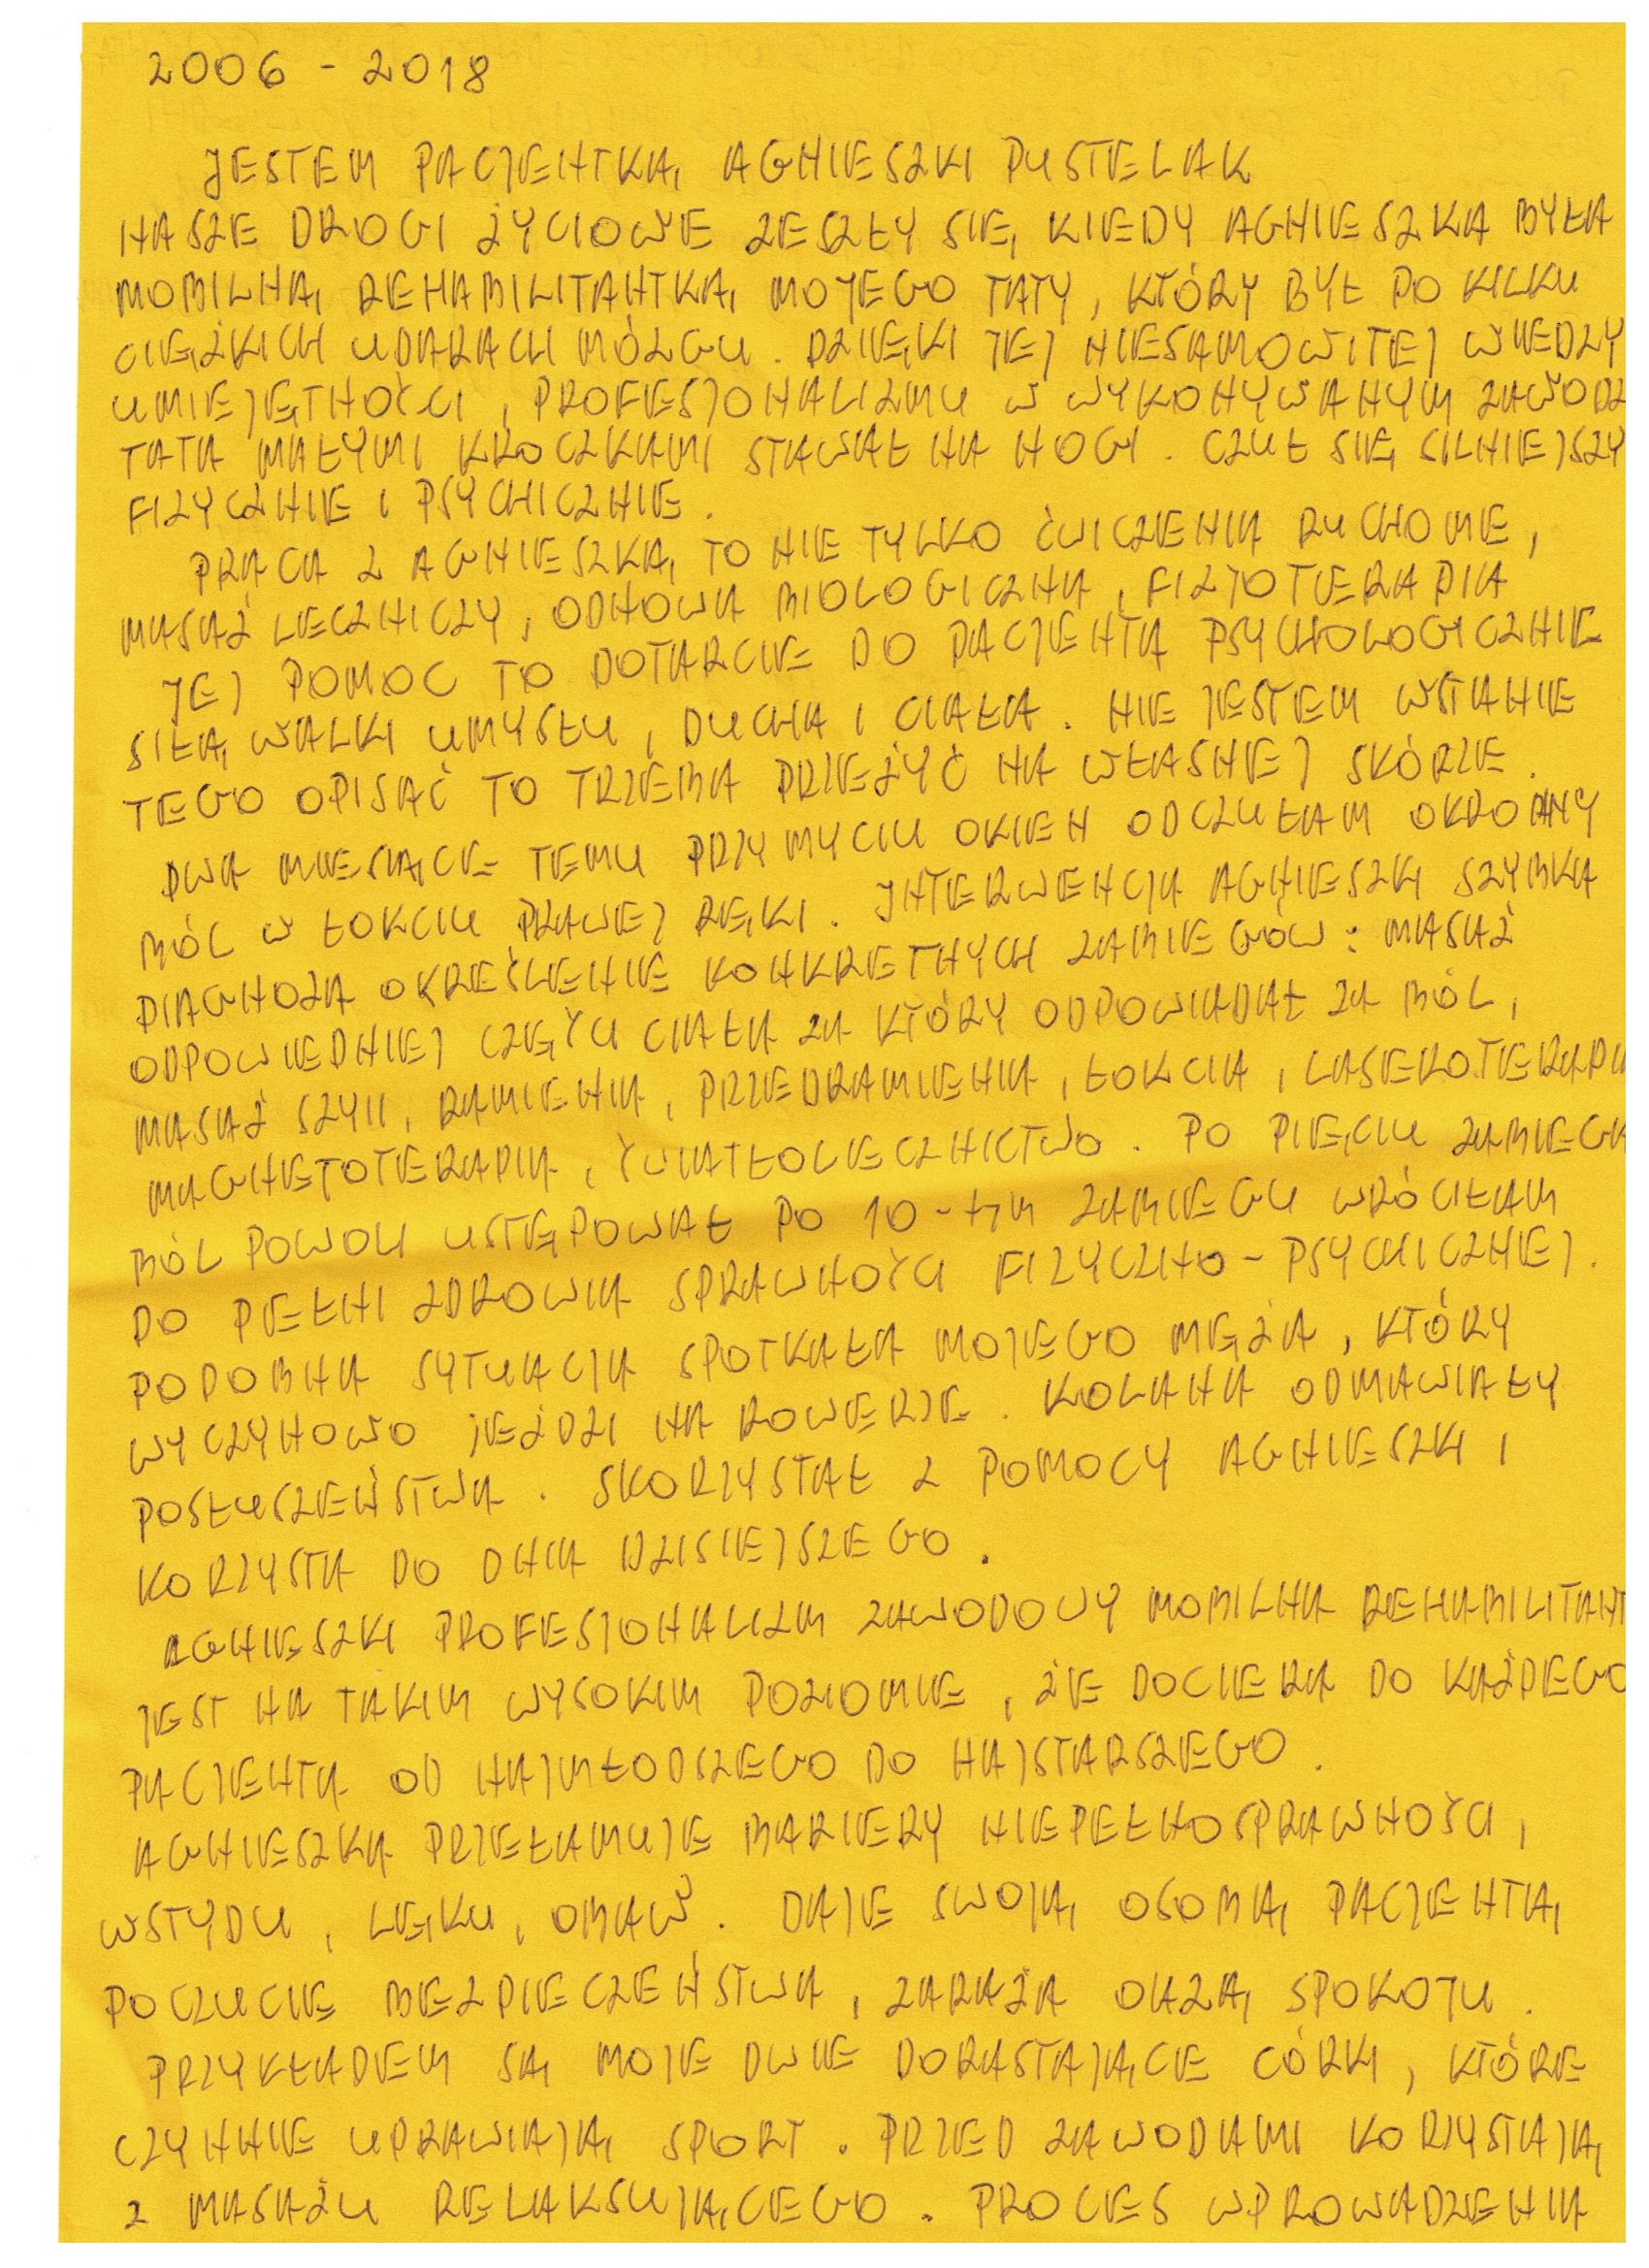 2006 - 2018
JESTEM PACJENTKĄ AGNIESZKI PUSTELAK
NASZE DROGI ŻYCIOWE ZESZŁY SIĘ, KIEDY AGNIESZKA BYŁA
MOBILNĄ REHABILITANTKĄ MOJEGO TATY, KTÓRY BYŁ PO KILKU
CIĘŻKICH UDARACH MÓZGU. DZIĘKI JEJ NIESAMOWITEJ WIEDZY
UMIEJĘTNOŚCI, PROFESJONALIZMU W WYKONYWANYM ZAWODZ
TATA MAŁYMI KROCZKAMI STAWAŁ NA NOGI. CZUŁ SIĘ SILNIEJSZY
FIZYCZNIE I PSYCHICZNIE.
PRACA Z AGNIESZKĄ TO NIE TYLKO ĆWICZENIA RUCHOME,
MASAŻ LECZNICZY, ODNOWA BIOLOGICZNA, FIZJOTERAPIA
JEJ POMOC TO DOTARCIE DO PACJENTA PSYCHOLOGICZNIE
SIŁĄ WALKI UMYSŁU, DUCHA I CIAŁA. NIE JESTEM WSTANIE
TEGO OPISAĆ TO TRZEBA PRZEŻYĆ NA WŁASNEJ SKÓRZE.
DWA MIESIĄCE TEMU PRZY MYCIU OKIEN ODCZUŁAM OKROPNY
BÓL W ŁOKCIU PRAWEJ RĘKI. INTERWENCJA AGNIESZKI SZYBKA
DIAGNOZA OKREŚLENIE KONKRETNYCH ZABIEGÓW: MASAŻ
ODPOWIEDNIEJ CZĘŚCI CIAŁA ZA KTÓRY ODPOWIADAŁ ZA BÓL,
MASAŻ SZYII, RAMIENIA, PRZEDRAMIENIA, ŁOKCIA, LASEROTERAPIA
MAGNETOTERAPIA, ŚWIATŁOLECZNICTWO. PO PIĘCIU ZABIEGA
BÓL POWOLI USTĘPOWAŁ PO 10-tym ZABIEGU WRÓCIŁAM
DO PEŁNI ZDROWIA SPRAWNOŚCI FIZYCZNO-PSYCHICZNEJ.
PODOBNA SYTUACJA SPOTKAŁA MOJEGO MĘŻA, KTÓRY
WYCZYNOWO JEŹDZI NA ROWERZE. KOLANA ODMAWIAŁY
POSŁUSZEŃSTWA. SKORZYSTAŁ Z POMOCY AGNIESZKI I
KORZYSTA DO DNIA DZISIEJSZEGO.
AGNIESZKI PROFESJONALIZM ZAWODOWY MOBILNA REHABILITANT
JEST NA TAKIM WYSOKIM POZIOMIE, ŻE DOCIERA DO KAŻDEGO
PACJENTA OD NAJMŁODSZEGO DO NAJSTARSZEGO.
AGNIESZKA PRZEŁAMUJE BARIERY NIEPEŁNOSPRAWNOŚCI,
WSTYDU, LĘKU, OBAW. DAJE SWOJĄ OSOBĄ PACJENTĄ
POCZUCIE BEZPIECZEŃSTWA, ZARAŻA OAZĄ SPOKOJU.
PRZYKŁADEM SĄ MOJE DWIE DORASTAJĄCE CÓRKI, KTÓRE
CZYNNIE UPRAWIAJĄ SPORT. PRZED ZAWODAMI KORZYSTAJĄ
Z MASAŻU RELAKSUJĄCEGO. PROCES WPROWADZENIA